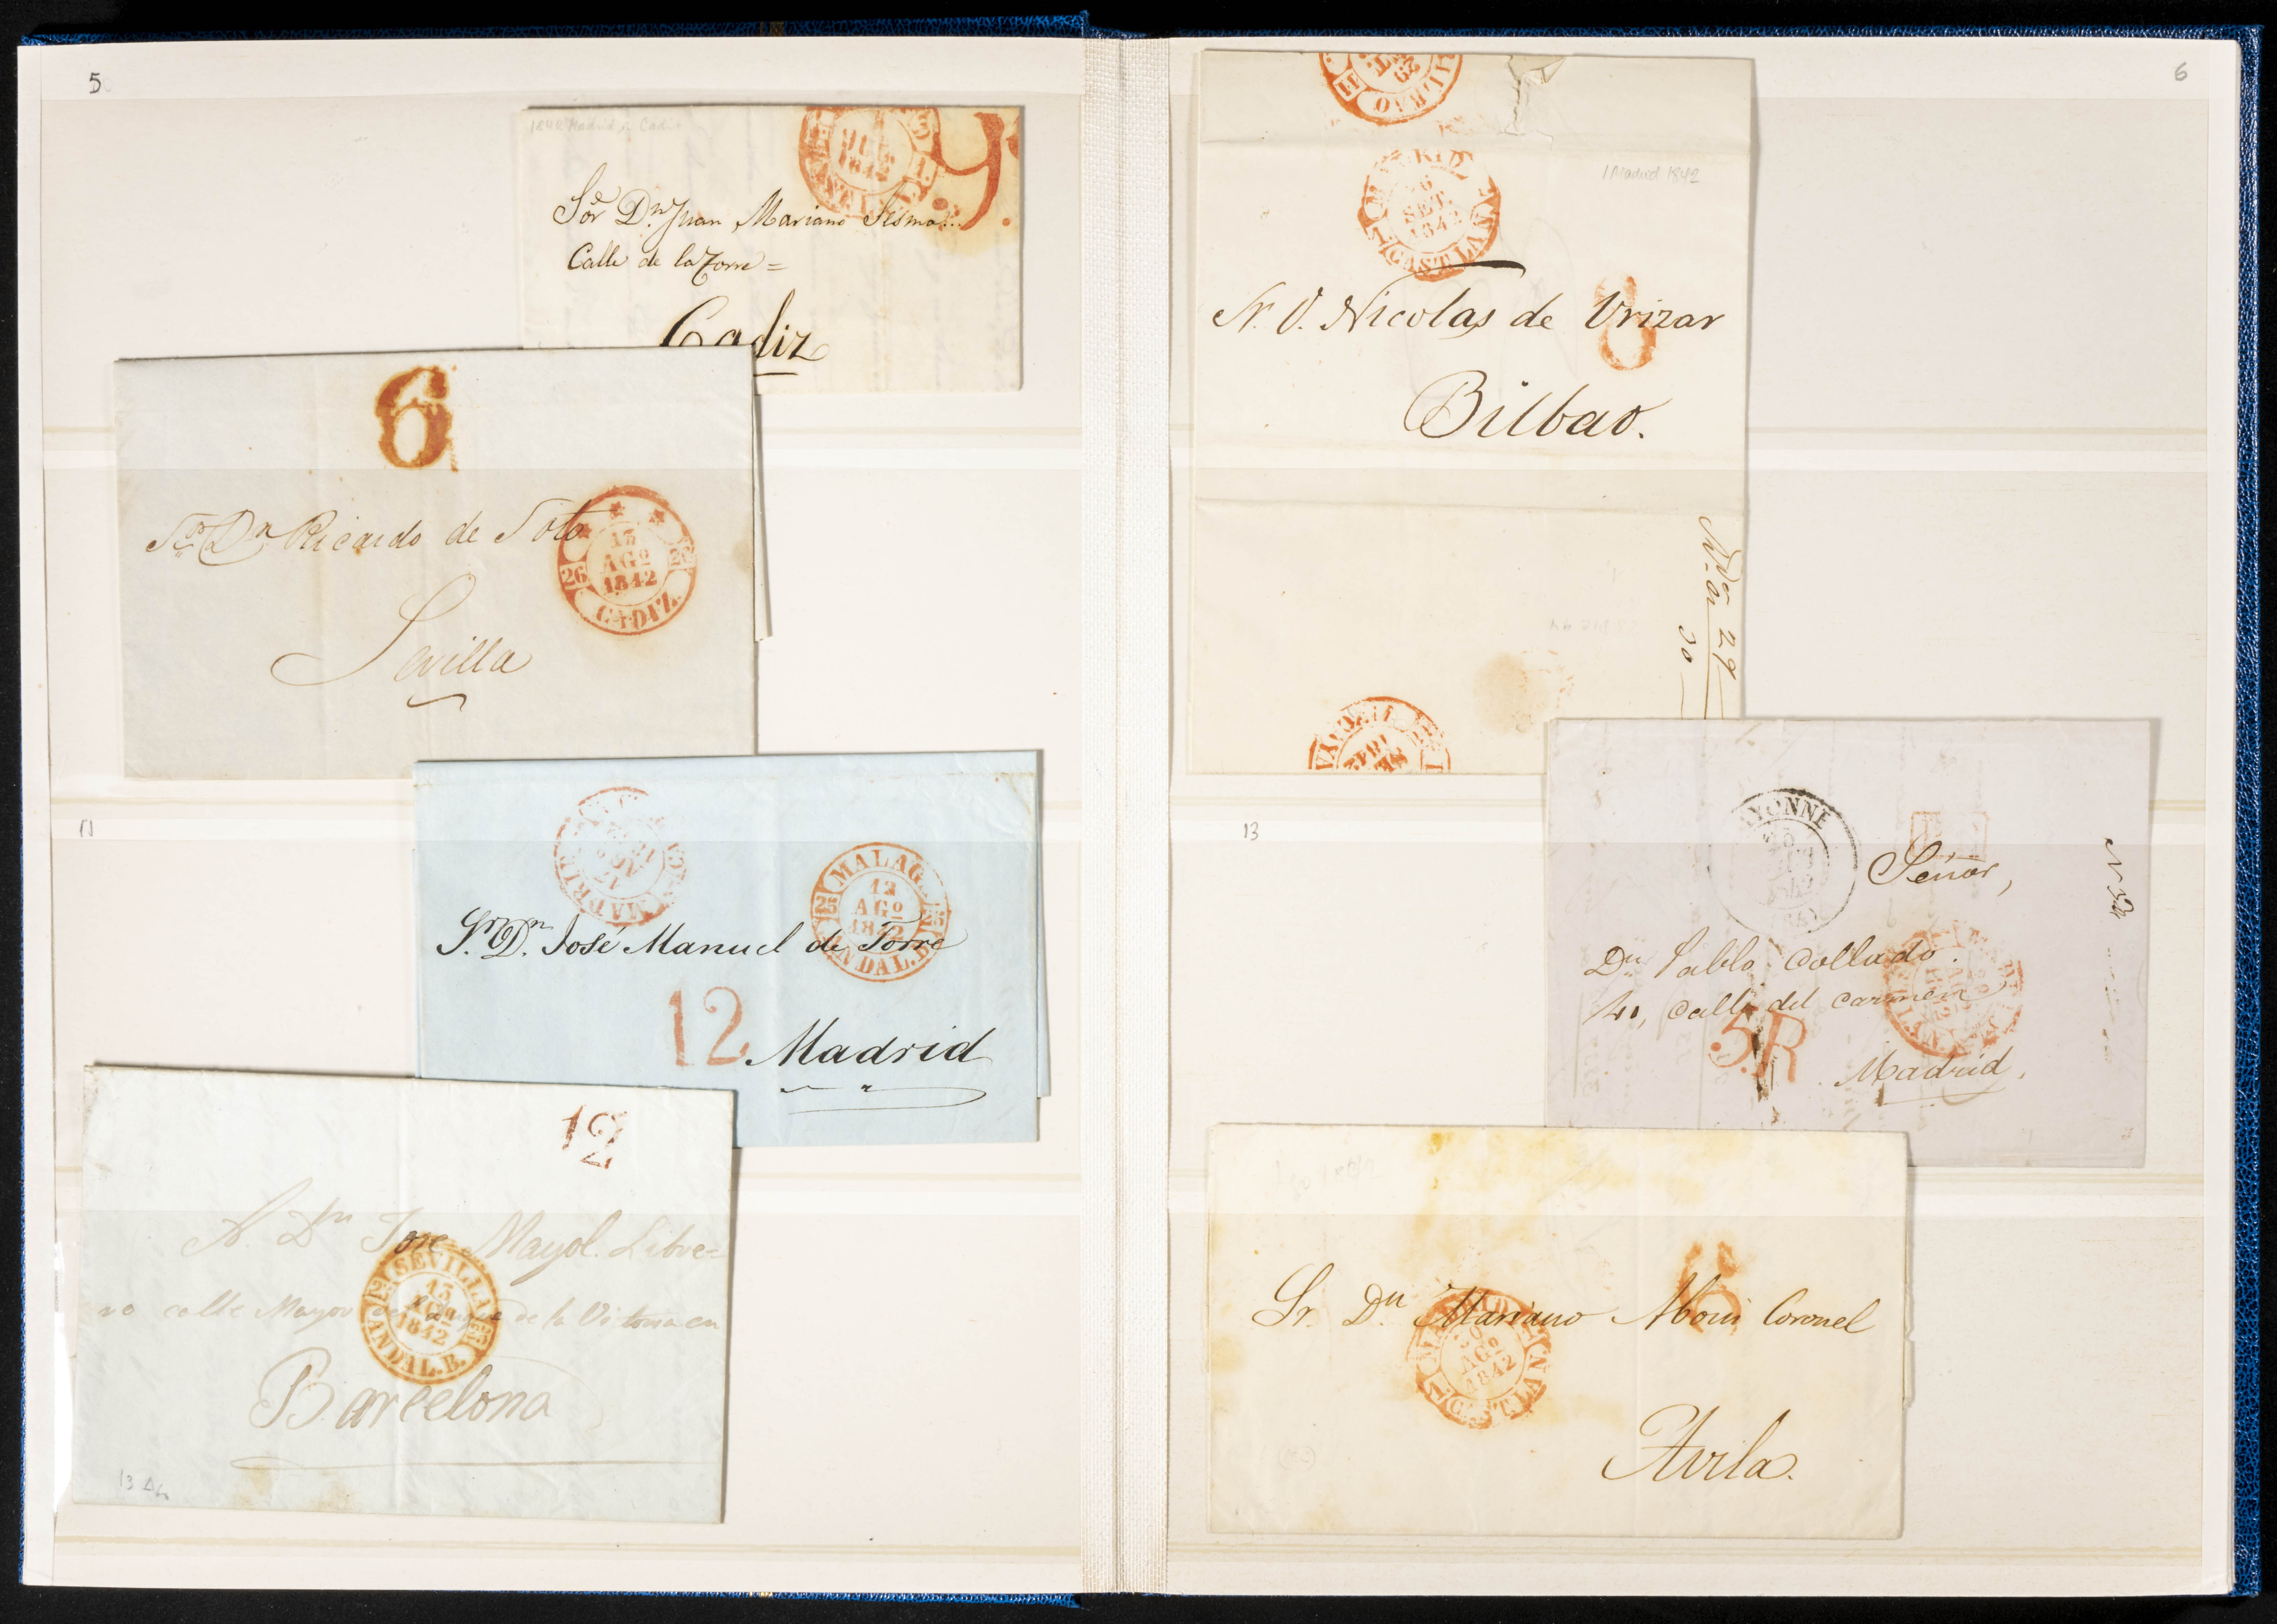 5
1842 Madrid a Cadiz
1842
9
Sor Dn Juan Mariano
Calle de la Torre =
Cadiz
6
Sor Dn Ricardo de Soto
13
AGo
1842
26 26
CADIZ.
Sevilla
11
MADRID
MALAGA
12
AGo
1842
25 25
ANDAL.B.
Sr. Dn. José Manuel de Torre
12
Madrid
12
A Dn Jose Mayol. Libre=
SEVILLA
13
AGo
1842
ANDAL.B.
ro calle Mayor de la Vitoria en
Barcelona
13 Ag
6
BILBAO
1 Madrid 1842
MADRID
26
SET.
1842
1 CAST.LA N.
8
Sr. D. Nicolas de Urizar
Bilbao.
29
30
13
BAYONNE
Señor,
Dn Pablo Collado.
40, Calle del Carmen
5R
Madrid.
6
Sr. Dn Mariano Coronel
MADRID
AGo
1842
1 CAST.LA N.
Avila.